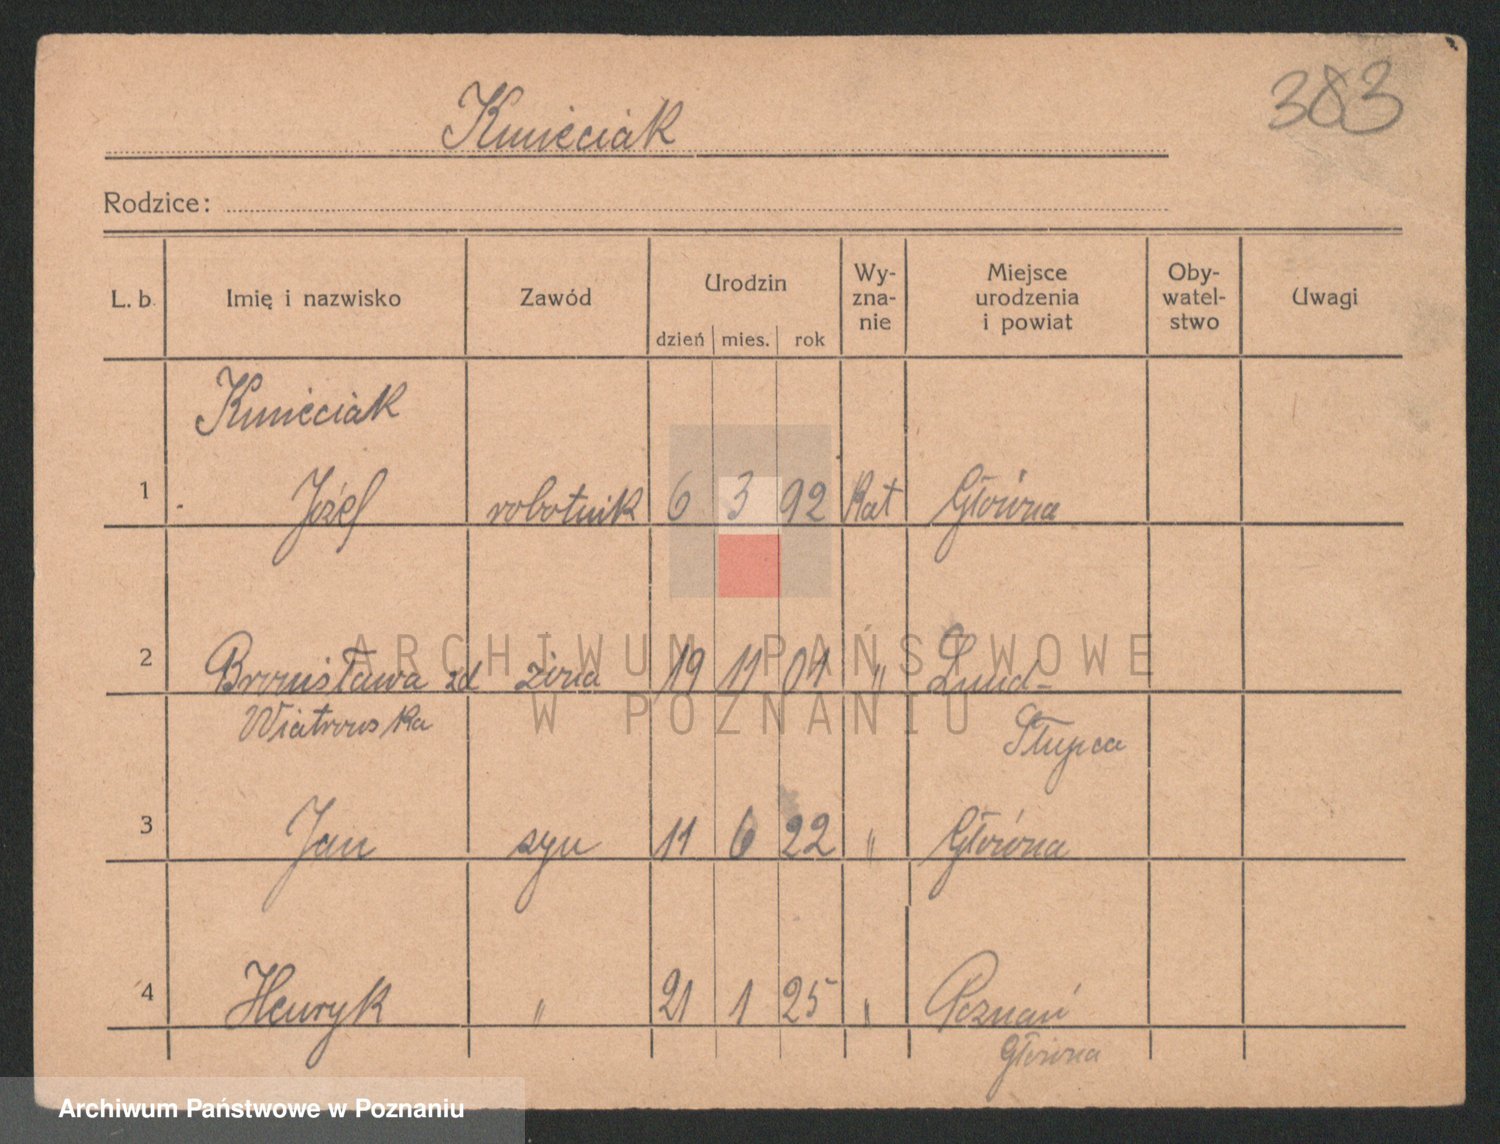 383
Kmieciak
Rodzice:
L. b. Imię i nazwisko Zawód Urodzin Wy- zna- nie Miejsce urodzenia i powiat Oby- watel- stwo Uwagi
dzień mies. rok
Kmieciak
1 Józef robotnik 6 3 92 kat Główna
2 Bronisława zd żona 19 11 01 " Lund-
Wiatrowska Słupca
3 Jan syn 11 6 22 " Główna
4 Henryk " 21 1 25 " Poznań
Główna
ARCHIWUM PAŃSTWOWE
W POZNANIU
Archiwum Państwowe w Poznaniu